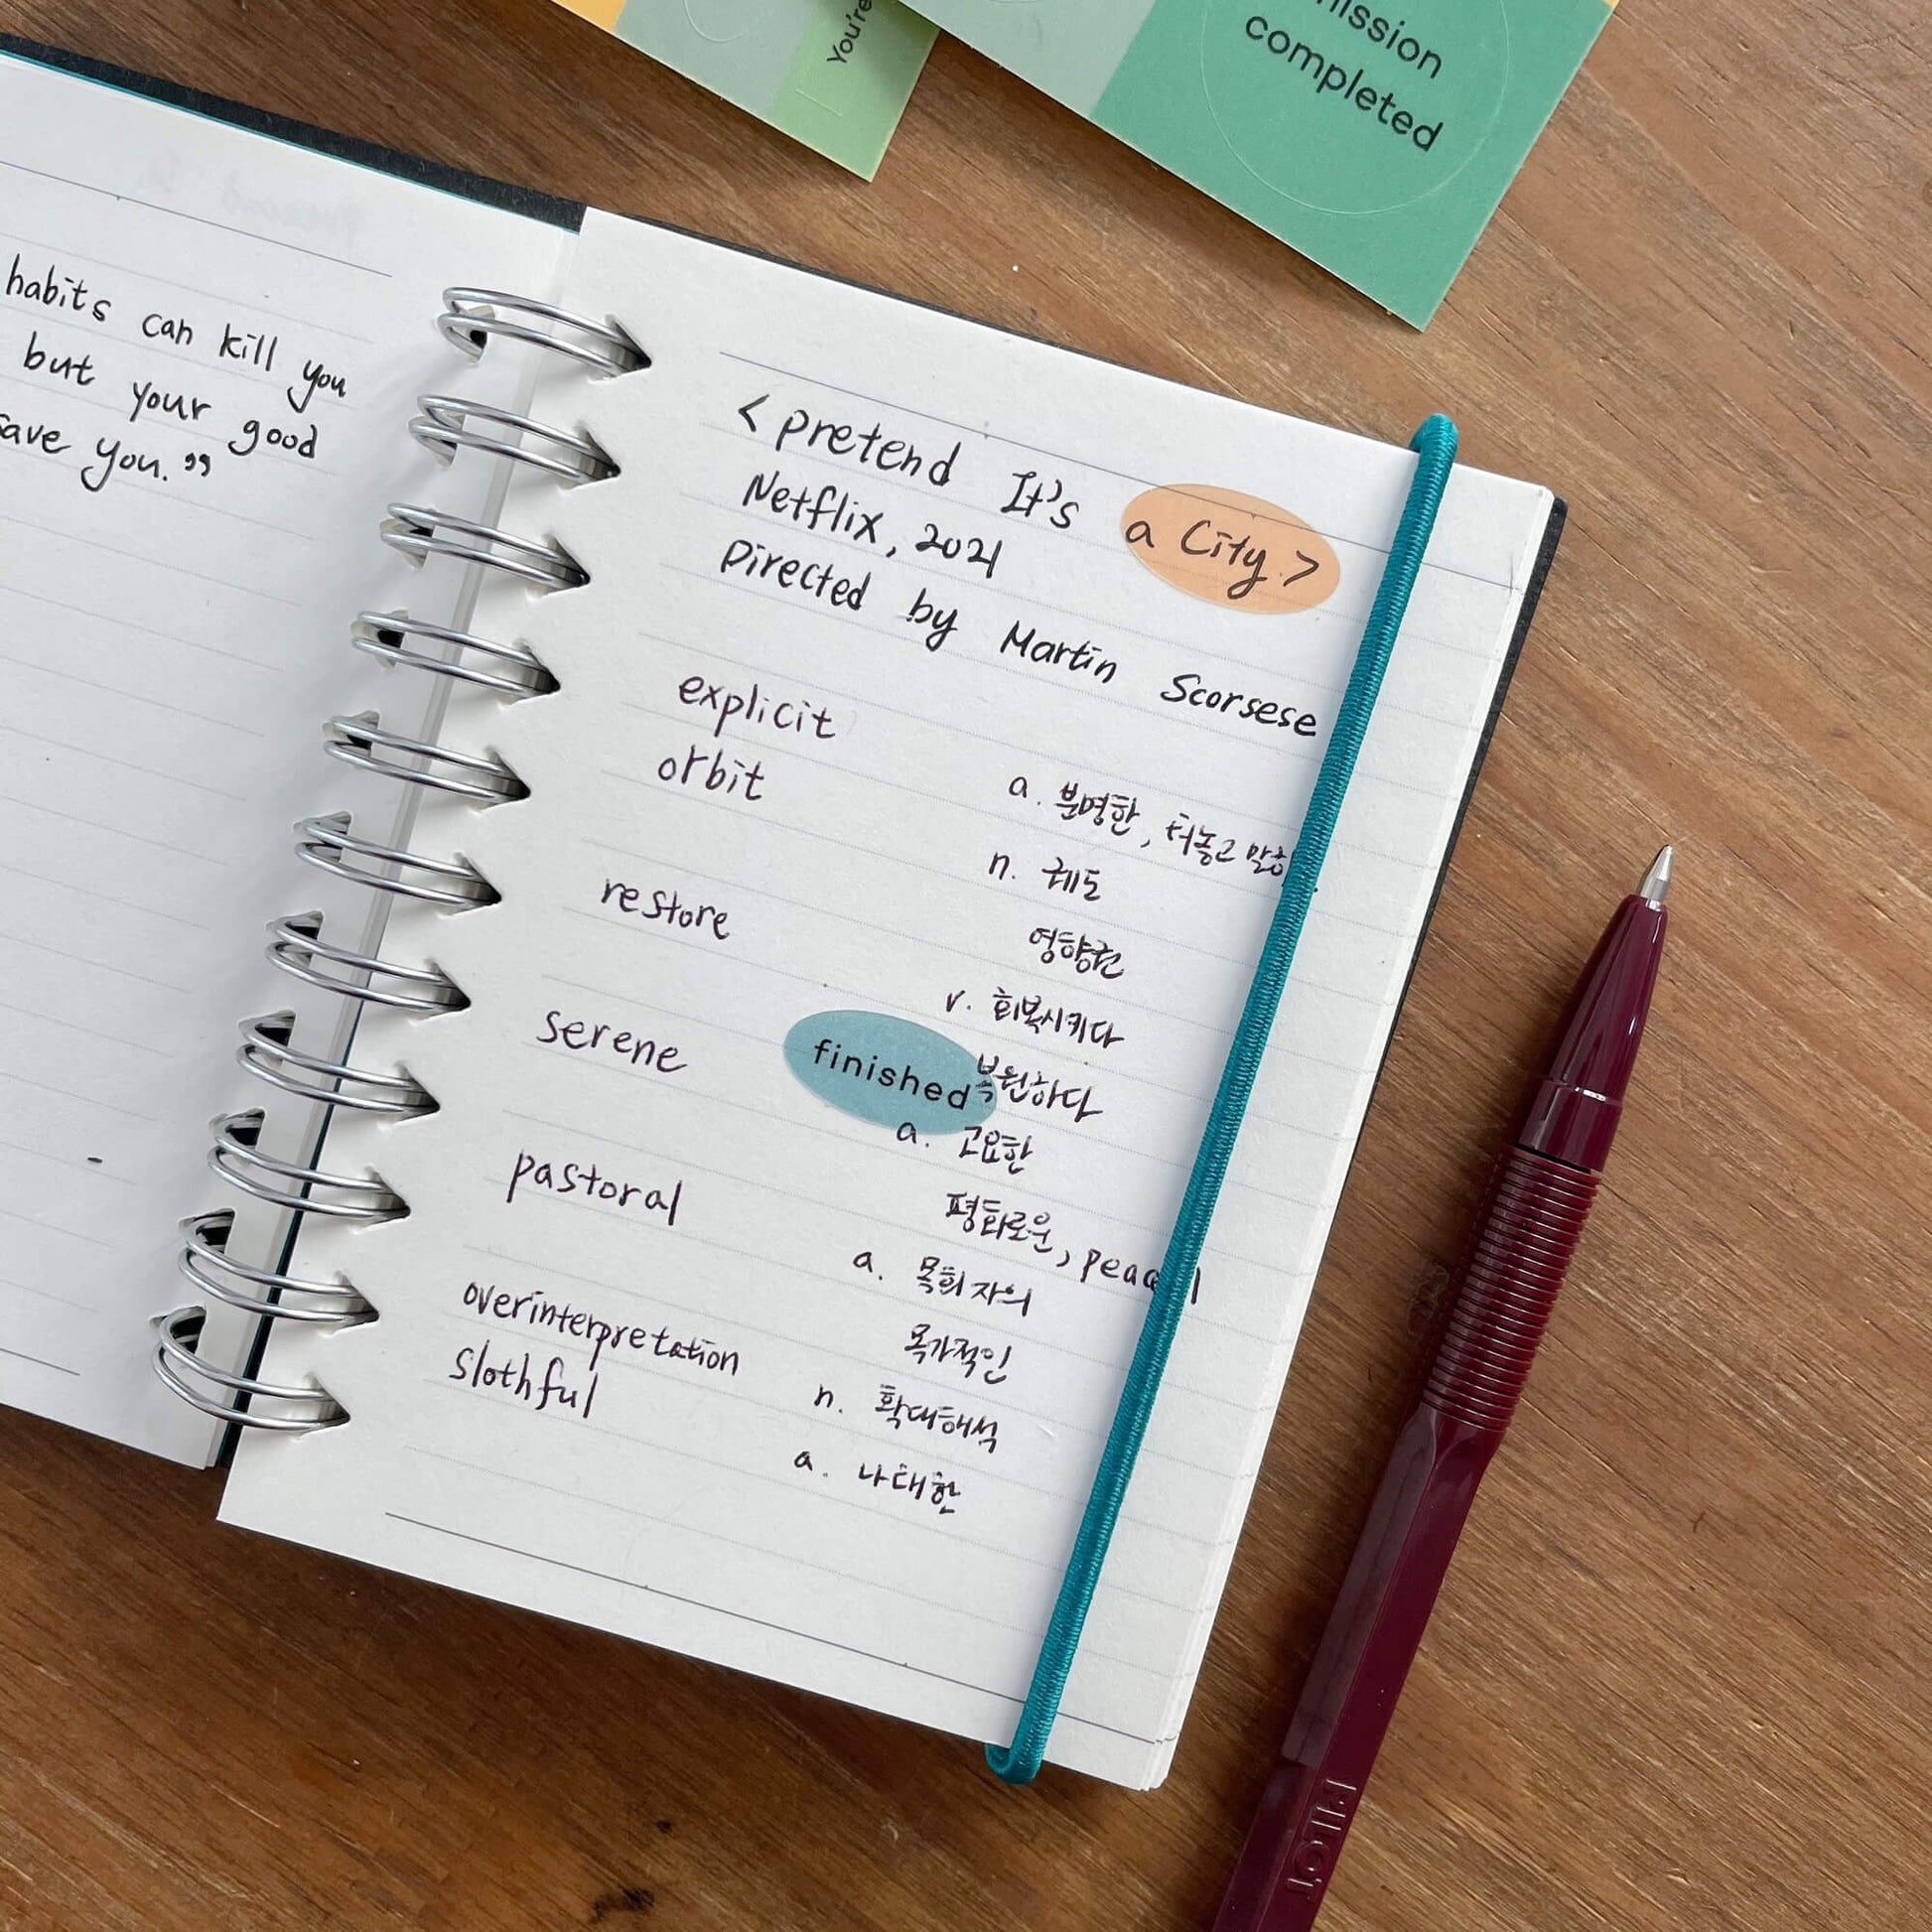 You're
mission
completed
habits can kill you
but your good
save you.”
<pretend It's a City.>
Netflix, 2021
Directed by Martin Scorsese
explicit a. 분명한, 터놓고 말하
orbit n. 궤도
영향권
restore v. 회복시키다
복원하다
serene finished a. 고요한
평화로운,
pastoral a. 목회자의
목가적인
overinterpretation n. 확대해석
slothful a. 나태한
PILOT